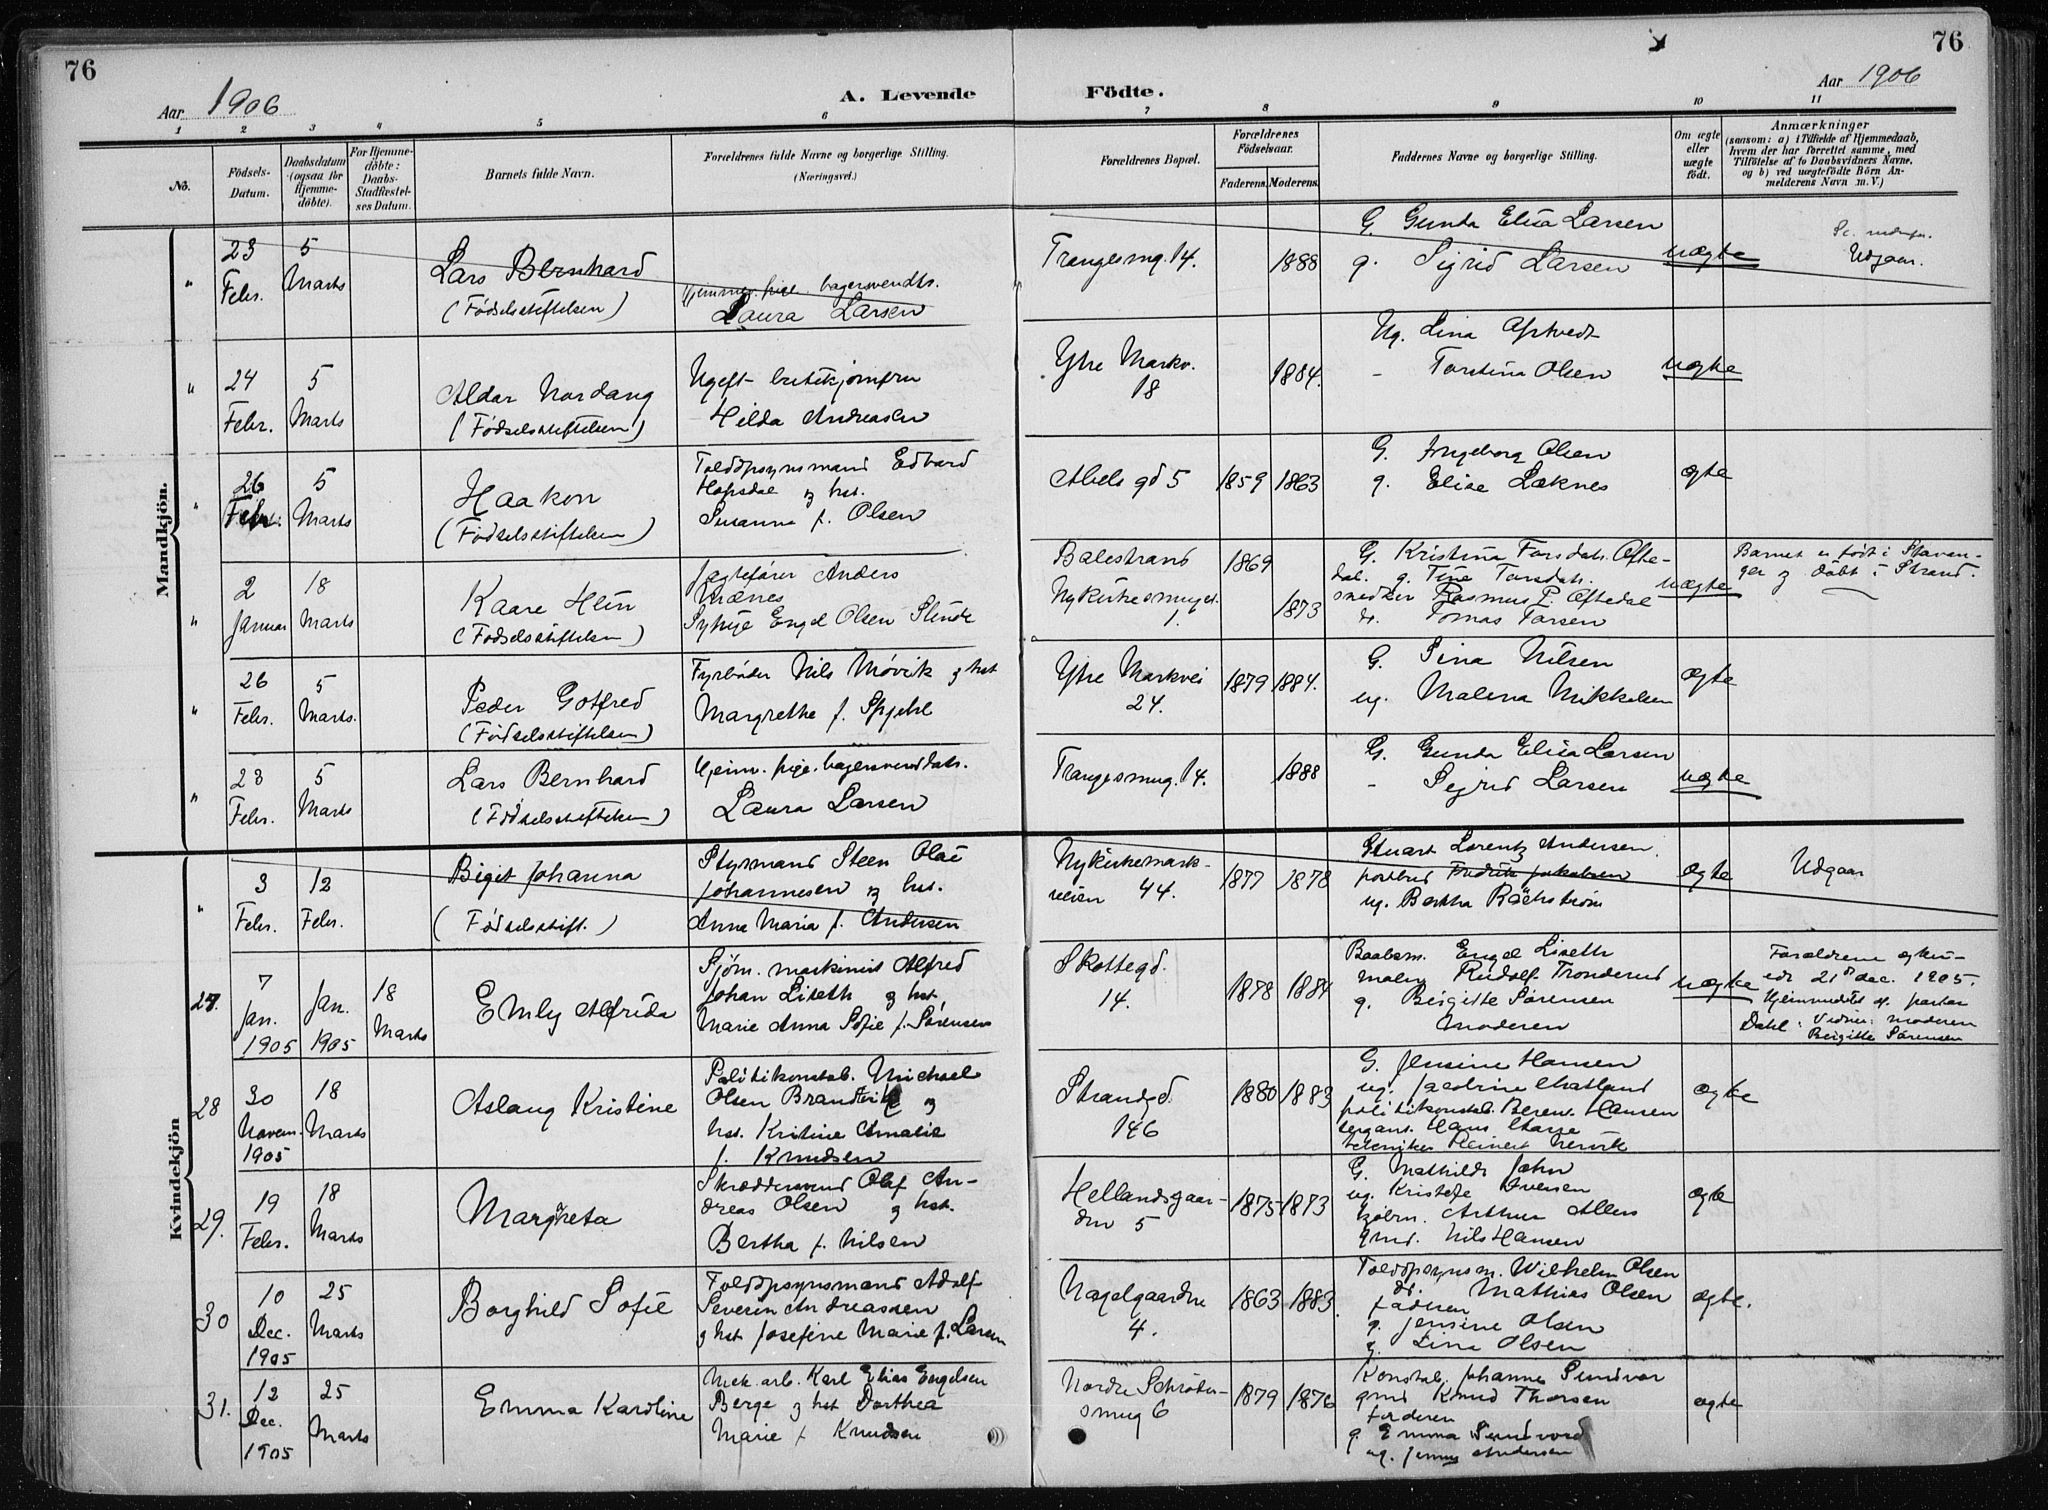 76
76
Aar 1906
A. Levende
Födte.
Aar 1906
1 2 3 4 5 6 7 8 9 10 11
No.
Födsels-Datum.
Daabsdatum (ogsaa for Hjemmedöbte).
For Hjemmedöbte: Daabs-Stadfæstelses Datum.
Barnets fulde Navn.
Forældrenes fulde Navne og borgerlige Stilling.
(Næringsvei.)
Forældrenes Bopæl.
Forældrenes Födselsaar.
Faderens. Moderens.
Faddernes Navne og borgerlige Stilling.
Om ægte eller uægte födt.
Anmærkninger
(saasom: a) i Tilfælde af Hjemmedaab,
hvem der har forrettet samme, med
Tilföielse af to Daabsvidners Navne.
og b) ved uægtefödte Börn An-
melderens Navn m. V.)
Mandkjön.
"
23 Febr.
5 Marts
Lars Bernhard
(Födselsstiftelsen)
Hjemmev. pige. bagersvendts.
Laura Larsen
Trangesmug. 14.
1888
G. Gunda Elisa Larsen
g. Sigrid Larsen
uægte
Udgaar.
"
24 Febr.
5 Marts
Aldar Nordang
(Födselsstiftelsen)
Ugift butikjomfru
Hilda Andreasen
Ytre Markv.
18
1884.
Ug. Lina
- Torstina Olsen
uægte
"
26 Febr.
5 Marts
Haakon
(Födselsstiftelsen)
Toldopsynsmand Edvard
Hopsdal og hst.
Susanne f. Olsen
Abels gd 5
1859 1863
G. Ingeborg Olsen
g. Elise Læknes
ægte
"
2 Januar
18 Marts
Kaare Hein
(Födselsstiftelsen)
Jægtefører Anders
Sypige Engel Olsen
Balestrand
Nykirkesmuget
1.
1869
1873
G. Kristina Torsdats. Afte-
dal. g. Tine Torsdats.
snedker Rasmus P. Aftedal
do. Tomas Tarsen
uægte
Barnet er født i Stavan-
ger og døbt i Strand.
"
26 Febr.
5 Marts.
Peder Gotfred
(Födselsstiftelsen)
Fyrbøder Nils Møvik og hst
Margrethe f. Spjeld
Ytre Markvei
24.
1879 1884.
G. Sina Nilsen
ug. Malena Mikkelsen
ægte
"
23 Febr.
5 Marts
Lars Bernhard
(Födselsstiftelsen)
Hjem. pige. bagersvenddats.
Laura Larsen
Trangesmug. 14.
1888
G. Gunda Elisa Larsen
- Sigrid Larsen
uægte
Kvindekjön
"
3 Febr.
12 Febr.
Birgit Johanna
(Födselsstift.)
Styrmand Steen Olai
Johannesen og hst.
Anna Maria f. Andersen
Nykirkemark-
veien 44.
1877 1878
Stuart Lorentz Andersen.
postbud Fredrik Jakobsen
ug. Bertha Bäckström
ægte
Udgaar
27.
7 Jan. 1905
Jan. 1905
18 Marts
Emly Alfrida
Sjöm. maskinist Alfred
Johan Liseth og hst.
Marie Anna Sofie f. Sørensen
Skottegd.
14.
1878 1884
Baadsm. Engel Liseth
maler Rudolf Tronderud
g. Birgitte Sørensen
moderen
uægte
Forældrene ægtevi-
ede 21de dec. 1905.
Hjemmedøbt af pastor
Dahl. Vidner: moderen
Birgitte Sørensen
28
30 Novem. 1905
18 Marts
Aslaug Kristine
Politikonstab. Michael
Olsen Brandtvik og
hst. Kritine Amalie
f. Knudsen
Strandgd.
146
1880 1883
G. Jensine Hansen
ug. Jacobine Chatland
politikonstab. Berent Hansen
sergant Hans
tekniker Reinert
ægte
29.
19 Febr.
18 Marts
Margreta
Skræddersvend Olaf An-
dreas Olsen og hst.
Bertha f. Nilsen
Hellandsgaar-
den 5
1875 1873
G. Mathilde John
ug. Kristofe Iversen
kjøbm. Arthur Allers
gmd. Nils Hansen
ægte
30
10 Dec. 1905
25 Marts
Borghild Sofie
Toldopsynsmand Adolf
Severin Andreassen
og hst Josefine Marie f. Larsen
Nagelgaarden
4.
1863 1883.
Toldopsynsm. Wilhelm Olsen
do. Mathias Olsen
faderen
g. Jensine Olsen
g. Lina Olsen
ægte.
31.
12 Dec. 1905
25 Marts
Emma Karoline
Mek. arb. Karl Elias Engelsen
Berge og hst Dorthea
Marie f. Knudsen
Nordre Schrøder-
smug 6
1879 1876
Konstab. Johannes Sundvor
gmd Knud Thorsen
faderen
g. Emma Sundvord
ug. Jenny Andersen
ægte